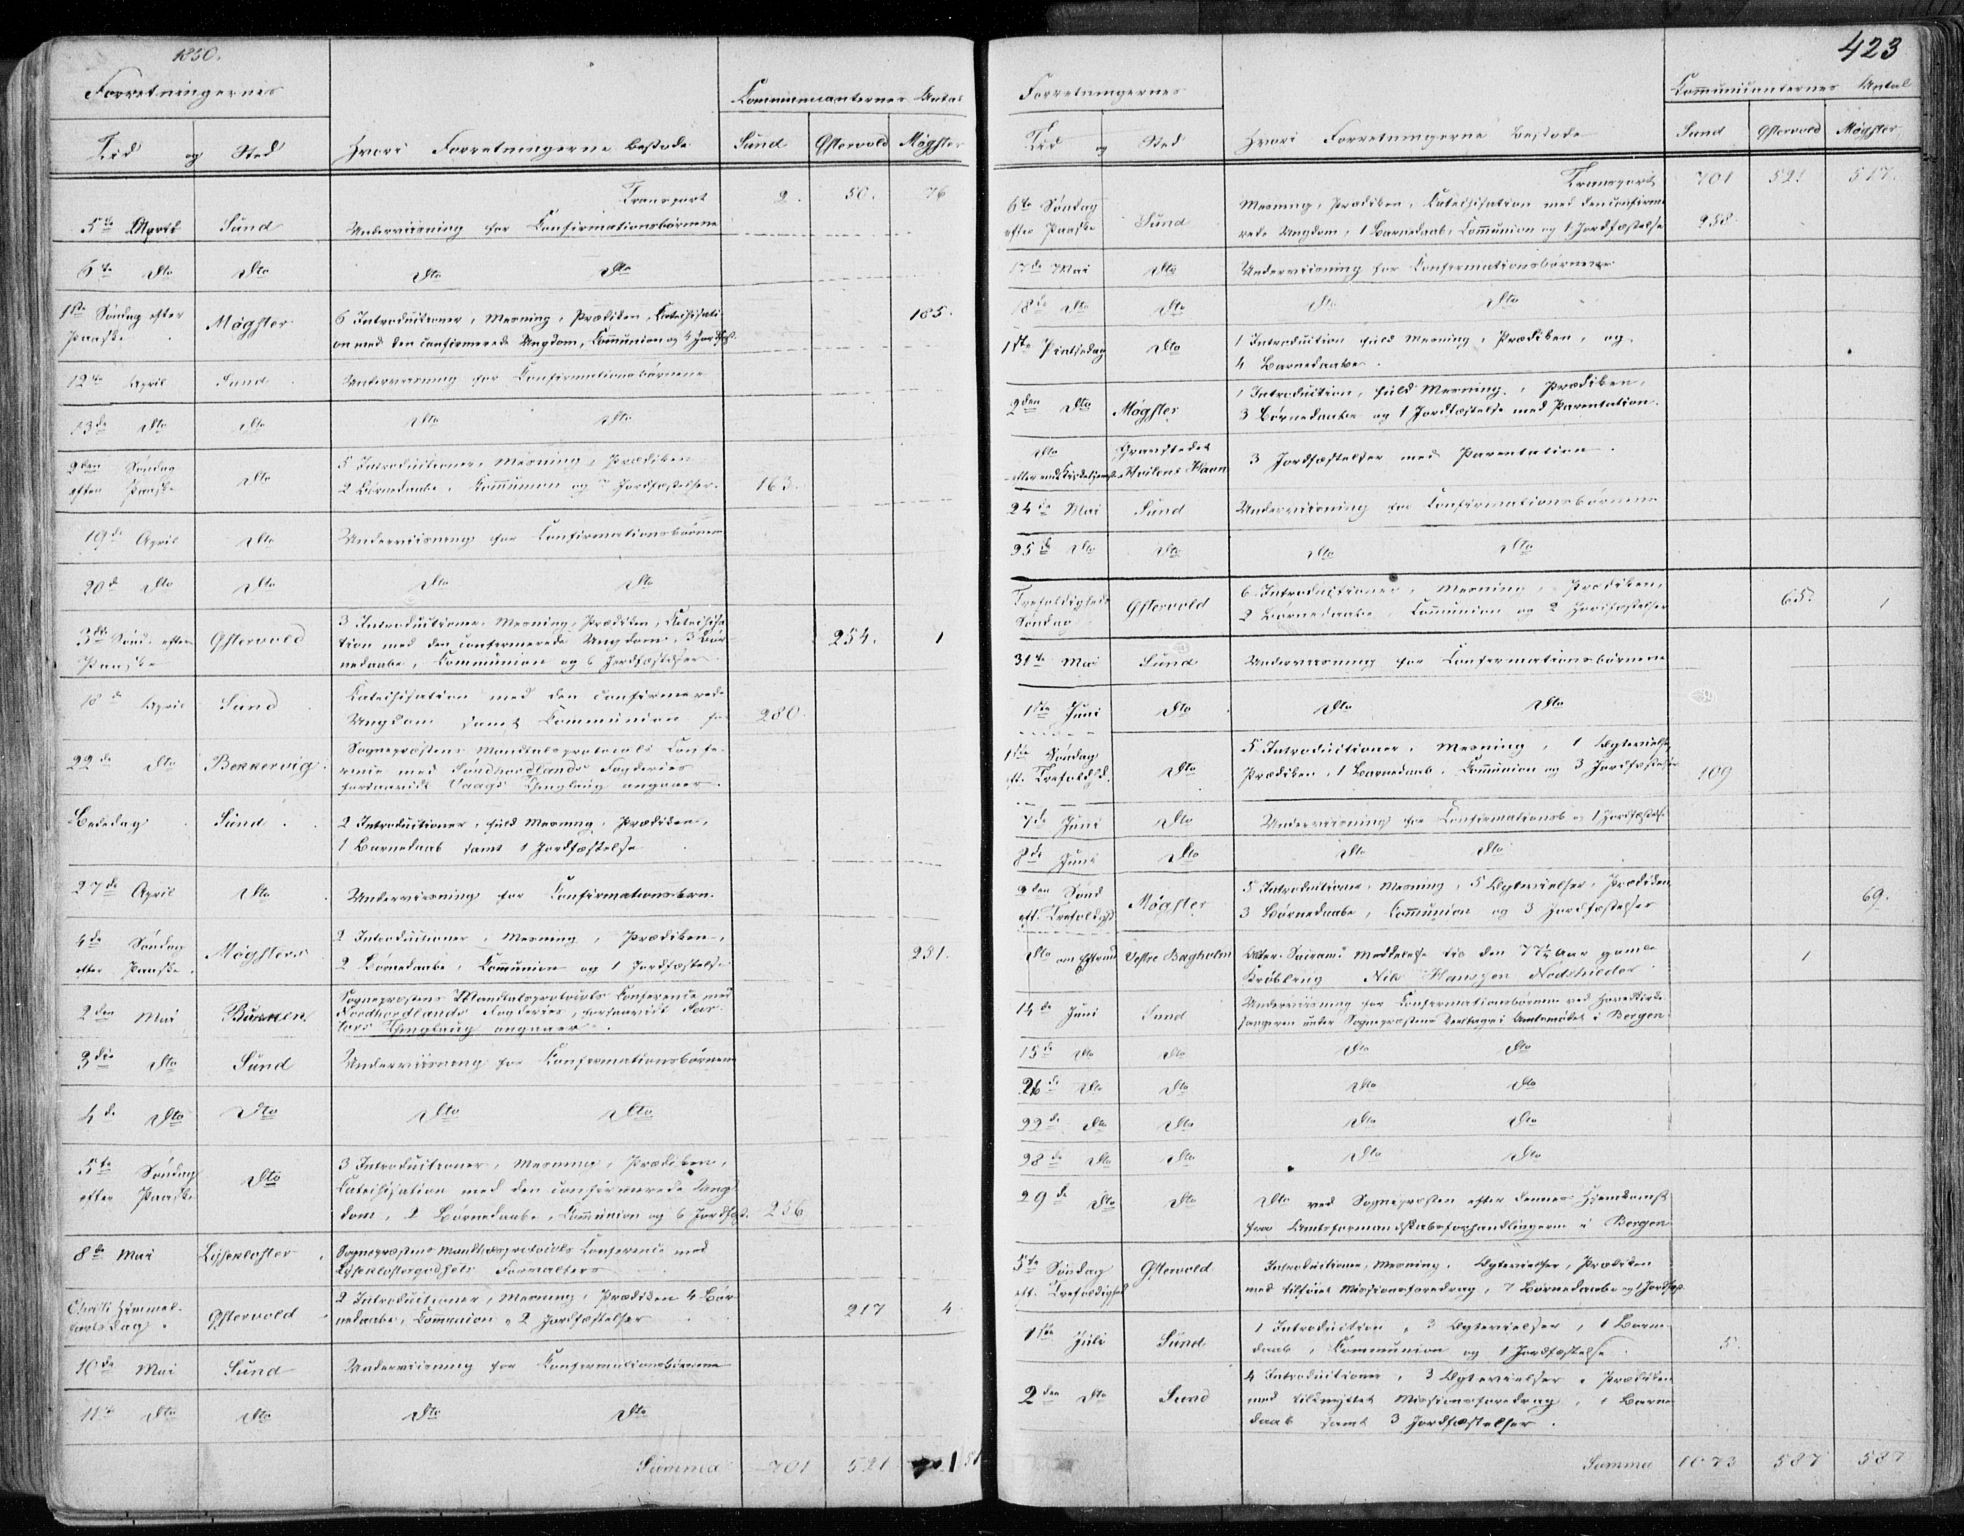 1850.
Forretningernes
Communicanternes Antal
Tid og Sted
Hvori Forretningerne bestode
Sund Østervold Møgster
Transport 2. 50. 76
5te April Sund Underviisning for Confirmationsbørnene
6te Dto Dto Dto Dto
1ste Søndag efter Paaske Møgster 6 Introductioner, Messning, Prædiken, Catechisati- 185.
on med den confirmerede Ungdom, Communion og 4 Jordfæst.
12te April Sund Underviisning for Confirmationsbørnene
13de Dto Dto Dto Dto
2den Søndag efter Paaske Dto 5 Introductioner, Messning, Prædiken
2 Børnedaabe, Communion og 7 Jordfæstelser. 163.
19de April Dto Underviisning for Confirmationsbørnen
20de Dto Dto Dto Dto
3die Sønd. efter Paaske Østervold 3 Introductioner, Messning, Prædiken, Catechisa-
tion med den confirmerede Ungdom, 3 Bør- 254. 1
nedaabe, Communion og 6 Jordfæstelser
18de April Sund Catechisation med den confirmerede
Ungdom samt Communion for 280.
22de Dto Bekkervig Sognepræstens Mandtalsprotocols Confe-
rence med Søndhordlands Fogderies
forsaavidt Vaags Thinglaug angaaer.
Bededag Sund 2 Introductioner, fuld Messning, Prædiken,
1 Barnedaab samt 1 Jordfæstelse
27de April Dto Underviisning for Confirmationsbrn.
4de Søndag efter Paaske Møgster 2 Introductioner, Messning, Prædiken,
2 Børnedaabe, Communion og 1 Jordfæstelse 231.
2den Mai Buanen Sognepræstens Mandtalsprotocols Conference med
Nordhordlands Fogderies, forsaavidt
Thinglaug angaaer.
3die Dto Sund Underviisning for Confirmationsbørnene
4de Dto Dto Dto Dto
5te Søndag efter Paaske Dto 3 Introductioner, Messning, Prædiken,
Catechisation med den confirmerede Ung-
dom, 2 Børnedaabe, Communion og 6 Jordfæst. 256
8de Mai Lysekloster Sognepræstens Mandtalsprotocols Conference med
Lyseklostergodsets Forvalters
Christi Himmelfartsdag Østervold 2 Introductioner, Messning, Prædiken 4 Bør-
nedaabe, Communion, 2 Jordfæstelser 217 4
10de Mai Sund Underviisning for Confirmationsbørnene
11te Dto Dto Dto Dto
Summa 701 521
423
Forretningernes
Communicanternes Antal
Tid og Sted
Hvori Forretningerne bestode
Sund Østervold Møgster
Transport 701 521 517.
6te Søndag efter Paaske Sund Messning, Prædiken, Catechisation med den confirme-
rede Ungdom, 1 Barnedaab, Communion og 1 Jordfæstelse 258.
17de Mai Dto Underviisning for Confirmationsbørnene
18de Dto Dto Dto Dto
1ste Pintsedag Dto 1 Introduction fuld Messning, Prædiken, og
4 Barnedaabe.
2den Dto Møgster 1 Introduction, fuld Messning, Prædiken,
3 Børnedaabe og 1 Jordfæstelse med Parentation.
Dto efter endt Kirketjeneste Havn 3 Jordfæstelser med Parentation.
24de Mai Sund Underviisning for Confirmationsbørnene
25de Dto Dto Dto Dto
Trefoldigheds Søndag Østervold 6 Introductioner, Messning, Prædiken,
2 Børnedaabe, Communion og 2 Jordfæstelser 65. 1
31te Mai Sund Underviisning for Confirmationsbørnene
1ste Juni Dto Dto Dto
1ste Søndag eft. Trefoldhd. Dto 5 Introductioner, Messning, 1 Ægtevielse,
Prædiken, 1 Barnedaab, Communion og 3 Jordfæstelser 109
7de Juni Dto Underviisning for Confirmationsb og 1 Jordfæstelse
8de Juni Dto Dto Dto
2den Sønd eft. Trefoldighd Møgster 5 Introductioner, Messning, 5 Ægtevielser, Prædiken,
3 Børnedaabe, Communion og 3 Jordfæstelser 69.
Dto om Eftrmd Vestre Bagholm Alter-Sacram. Meddelelse til den 77½ Aar gamle
Krøbling Nils Hanssen 1
14de Juni Sund Underviisning for Confirmationsbørnene ved Hovedkirke-
sangeren under Sognepræstens Deeltagelse i Amtsmødet i Bergen
15de Dto Dto Dto Dto
26de Dto Dto Dto Dto
22de Dto Dto Dto Dto
28de Dto Dto Dto Dto
29de Dto Dto Dto ved Sognepræsten efter dennes Hjemkomst
fra Amtsformandskabsforhandlingerne i Bergen
5te Søndag eft. Trefoldighed Østervold Introductioner, Messning, Ægtevielser, Prædiken
med tilføiet Missionsforedrag, 7 Børnedaabe og 1 Jordfæst
1ste Juli Sund 1 Introduction, 3 Ægtevielser, 1 Barne-
daab, Communion og 1 Jordfæstelse. 5.
2den Dto Sund 4 Introductioner, 3 Ægtevielser, Prædiken
med tilknyttet Missionsforedrag, 1 Barne-
daab samt 3 Jordfæstelser.
Summa 1073 587 587